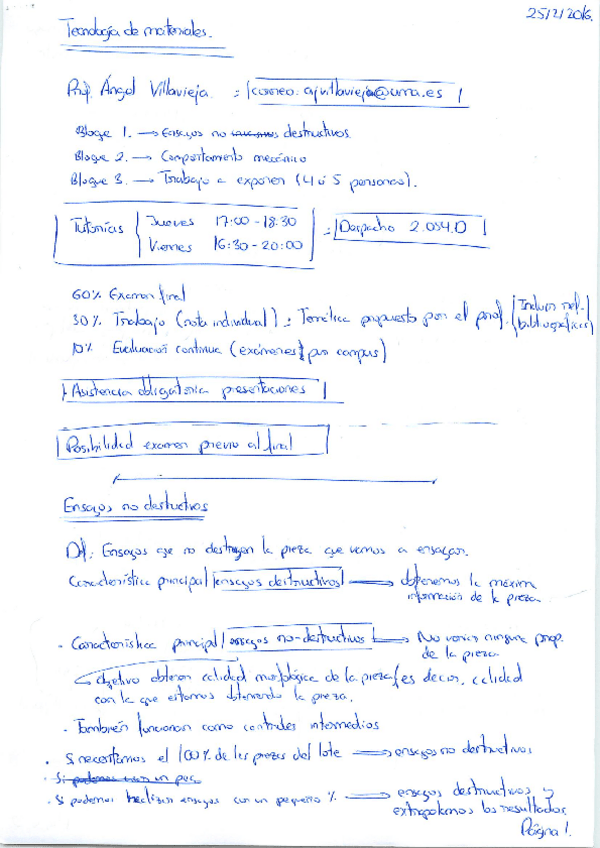 25/2/2016.
Tecnología de materiales.
Prof. Ángel Villavieja : correo: ajvillavieja@uma.es
Bloque 1. → Ensayos no destructivos
Bloque 2. → Comportamiento mecánico
Bloque 3. → Trabajo a exponer (4 ó 5 personas).
Tutorías { Jueves 17:00 - 18:30
Viernes 16:30 - 20:00 } = Despacho 2.054.D
60% Examen final
30% Trabajo (nota individual) : Temática propuesta por el prof. (Incluir ref. bibliográficas)
10% Evaluación continua (exámenes por campus)
Asistencia obligatoria presentaciones
Posibilidad examen previo al final
Ensayos no destructivos
Df: Ensayos que no destruyen la pieza que vamos a ensayar.
Característica principal / ensayos destructivos → obtenemos la máxima
información de la pieza.
- Característica principal / ensayos no-destructivos → No varían ninguna prop.
de la pieza.
Objetivo obtener calidad morfológica de la pieza, es decir, calidad
con la que estamos obteniendo la pieza.
- También funcionan como controles intermedios
· Si necesitamos el 100% de las piezas del lote → ensayos no destructivos
· Si podemos usar un peq
· Si podemos realizar ensayos con un pequeño % → ensayos destructivos y
extrapolamos los resultados.
Página 1.